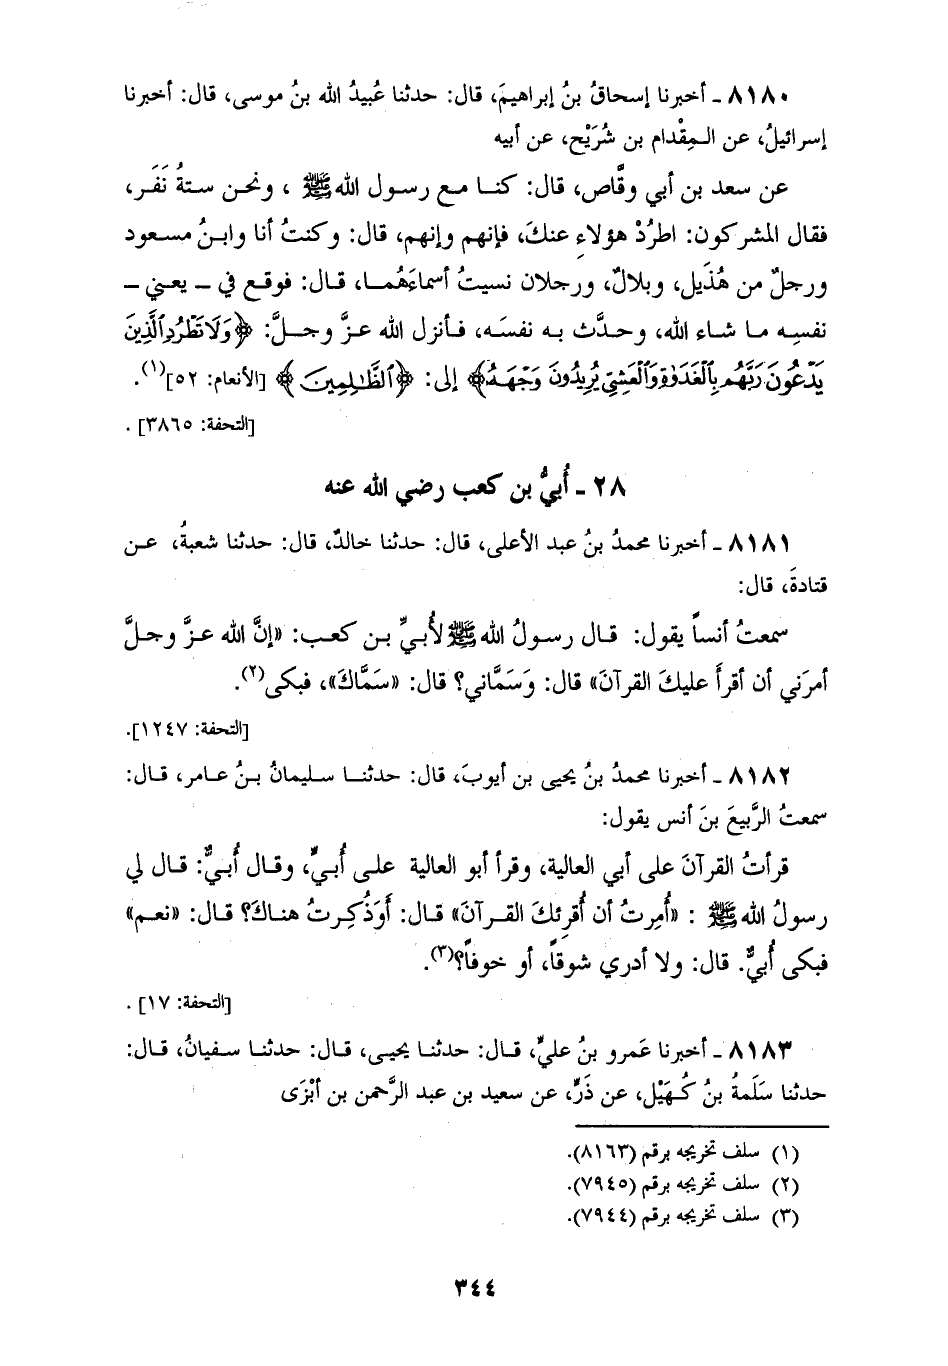 ٨١٨٠ ـ أخبرنا إسحاقُ بنُ إبراهيمَ، قال: حدثنا عُبيدُ الله بنُ موسى، قال: أخبرنا
إسرائيلُ، عن المِقْدام بن شُرَيْح، عن أبيه
عن سعد بن أبي وقَّاص، قال: كنا مع رسول الله ﷺ ، ونحن ستةُ نَفَر،
فقال المشركون: اطرُدْ هؤلاءِ عنكَ، فإنهم وإنهم، قال: وكنتُ أنا وابنُ مسعود
ورجلٌ من هُذَيل، وبلالٌ، ورجلان نسيتُ أسماءَهُما، قال: فوقع في ـ يعني ـ
نفسِه ما شاء الله، وحدَّث به نفسَه، فأنزل الله عزَّ وجلَّ: ﴿وَلَا تَطْرُدِ الَّذِينَ
يَدْعُونَ رَبَّهُم بِالْغَدَوٰةِ وَالْعَشِيِّ يُرِيدُونَ وَجْهَهُ﴾ إلى: ﴿الظَّٰلِمِينَ﴾ [الأنعام: ٥٢](١).
[التحفة: ٣٨٦٥] .
٢٨ ـ أُبيُّ بن كعب رضي الله عنه
٨١٨١ ـ أخبرنا محمدُ بنُ عبد الأعلى، قال: حدثنا خالدٌ، قال: حدثنا شعبةُ، عن
قتادةَ، قال:
سمعتُ أنساً يقول: قال رسولُ الله ﷺ لأُبيِّ بن كعب: «إنَّ الله عزَّ وجلَّ
أمرَني أن أقرأَ عليكَ القرآنَ» قال: وَسَمَّاني؟ قال: «سَمَّاكَ»، فبكى(٢).
[التحفة: ١٢٤٧].
٨١٨٢ ـ أخبرنا محمدُ بنُ يحيى بن أيوبَ، قال: حدثنا سليمانُ بنُ عامر، قال:
سمعتُ الرَّبيعَ بنَ أنس يقول:
قرأتُ القرآنَ على أبي العالية، وقرأ أبو العالية على أُبيٍّ، وقال أُبيٌّ: قال لي
رسولُ الله ﷺ : «أُمِرتُ أن أُقرِئكَ القرآنَ» قال: أَوَذُكِرتُ هناكَ؟ قال: «نعم»
فبكى أُبيٌّ. قال: ولا أدري شوقاً، أو خوفاً؟(٣).
[التحفة: ١٧] .
٨١٨٣ ـ أخبرنا عَمرو بنُ عليٍّ، قال: حدثنا يحيى، قال: حدثنا سفيانُ، قال:
حدثنا سَلَمةُ بنُ كُهَيْل، عن ذَرٍّ، عن سعيد بن عبد الرَّحمن بن أَبْزَى
(١) سلف تخريجه برقم (٨١٦٣).
(٢) سلف تخريجه برقم (٧٩٤٥).
(٣) سلف تخريجه برقم (٧٩٤٤).
٣٤٤